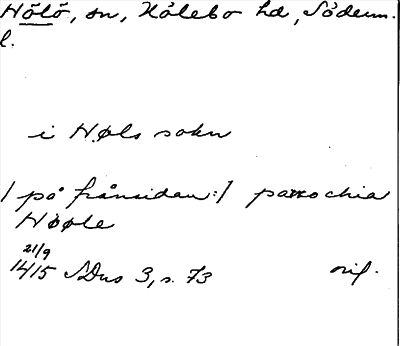 Hölö, sn, Hölebo hd, Söderm.
l.
i Høls sokn
/ på frånsidan:/ parrochia
Høøle
21/9
1415 SDns 3, s. 73 orig.